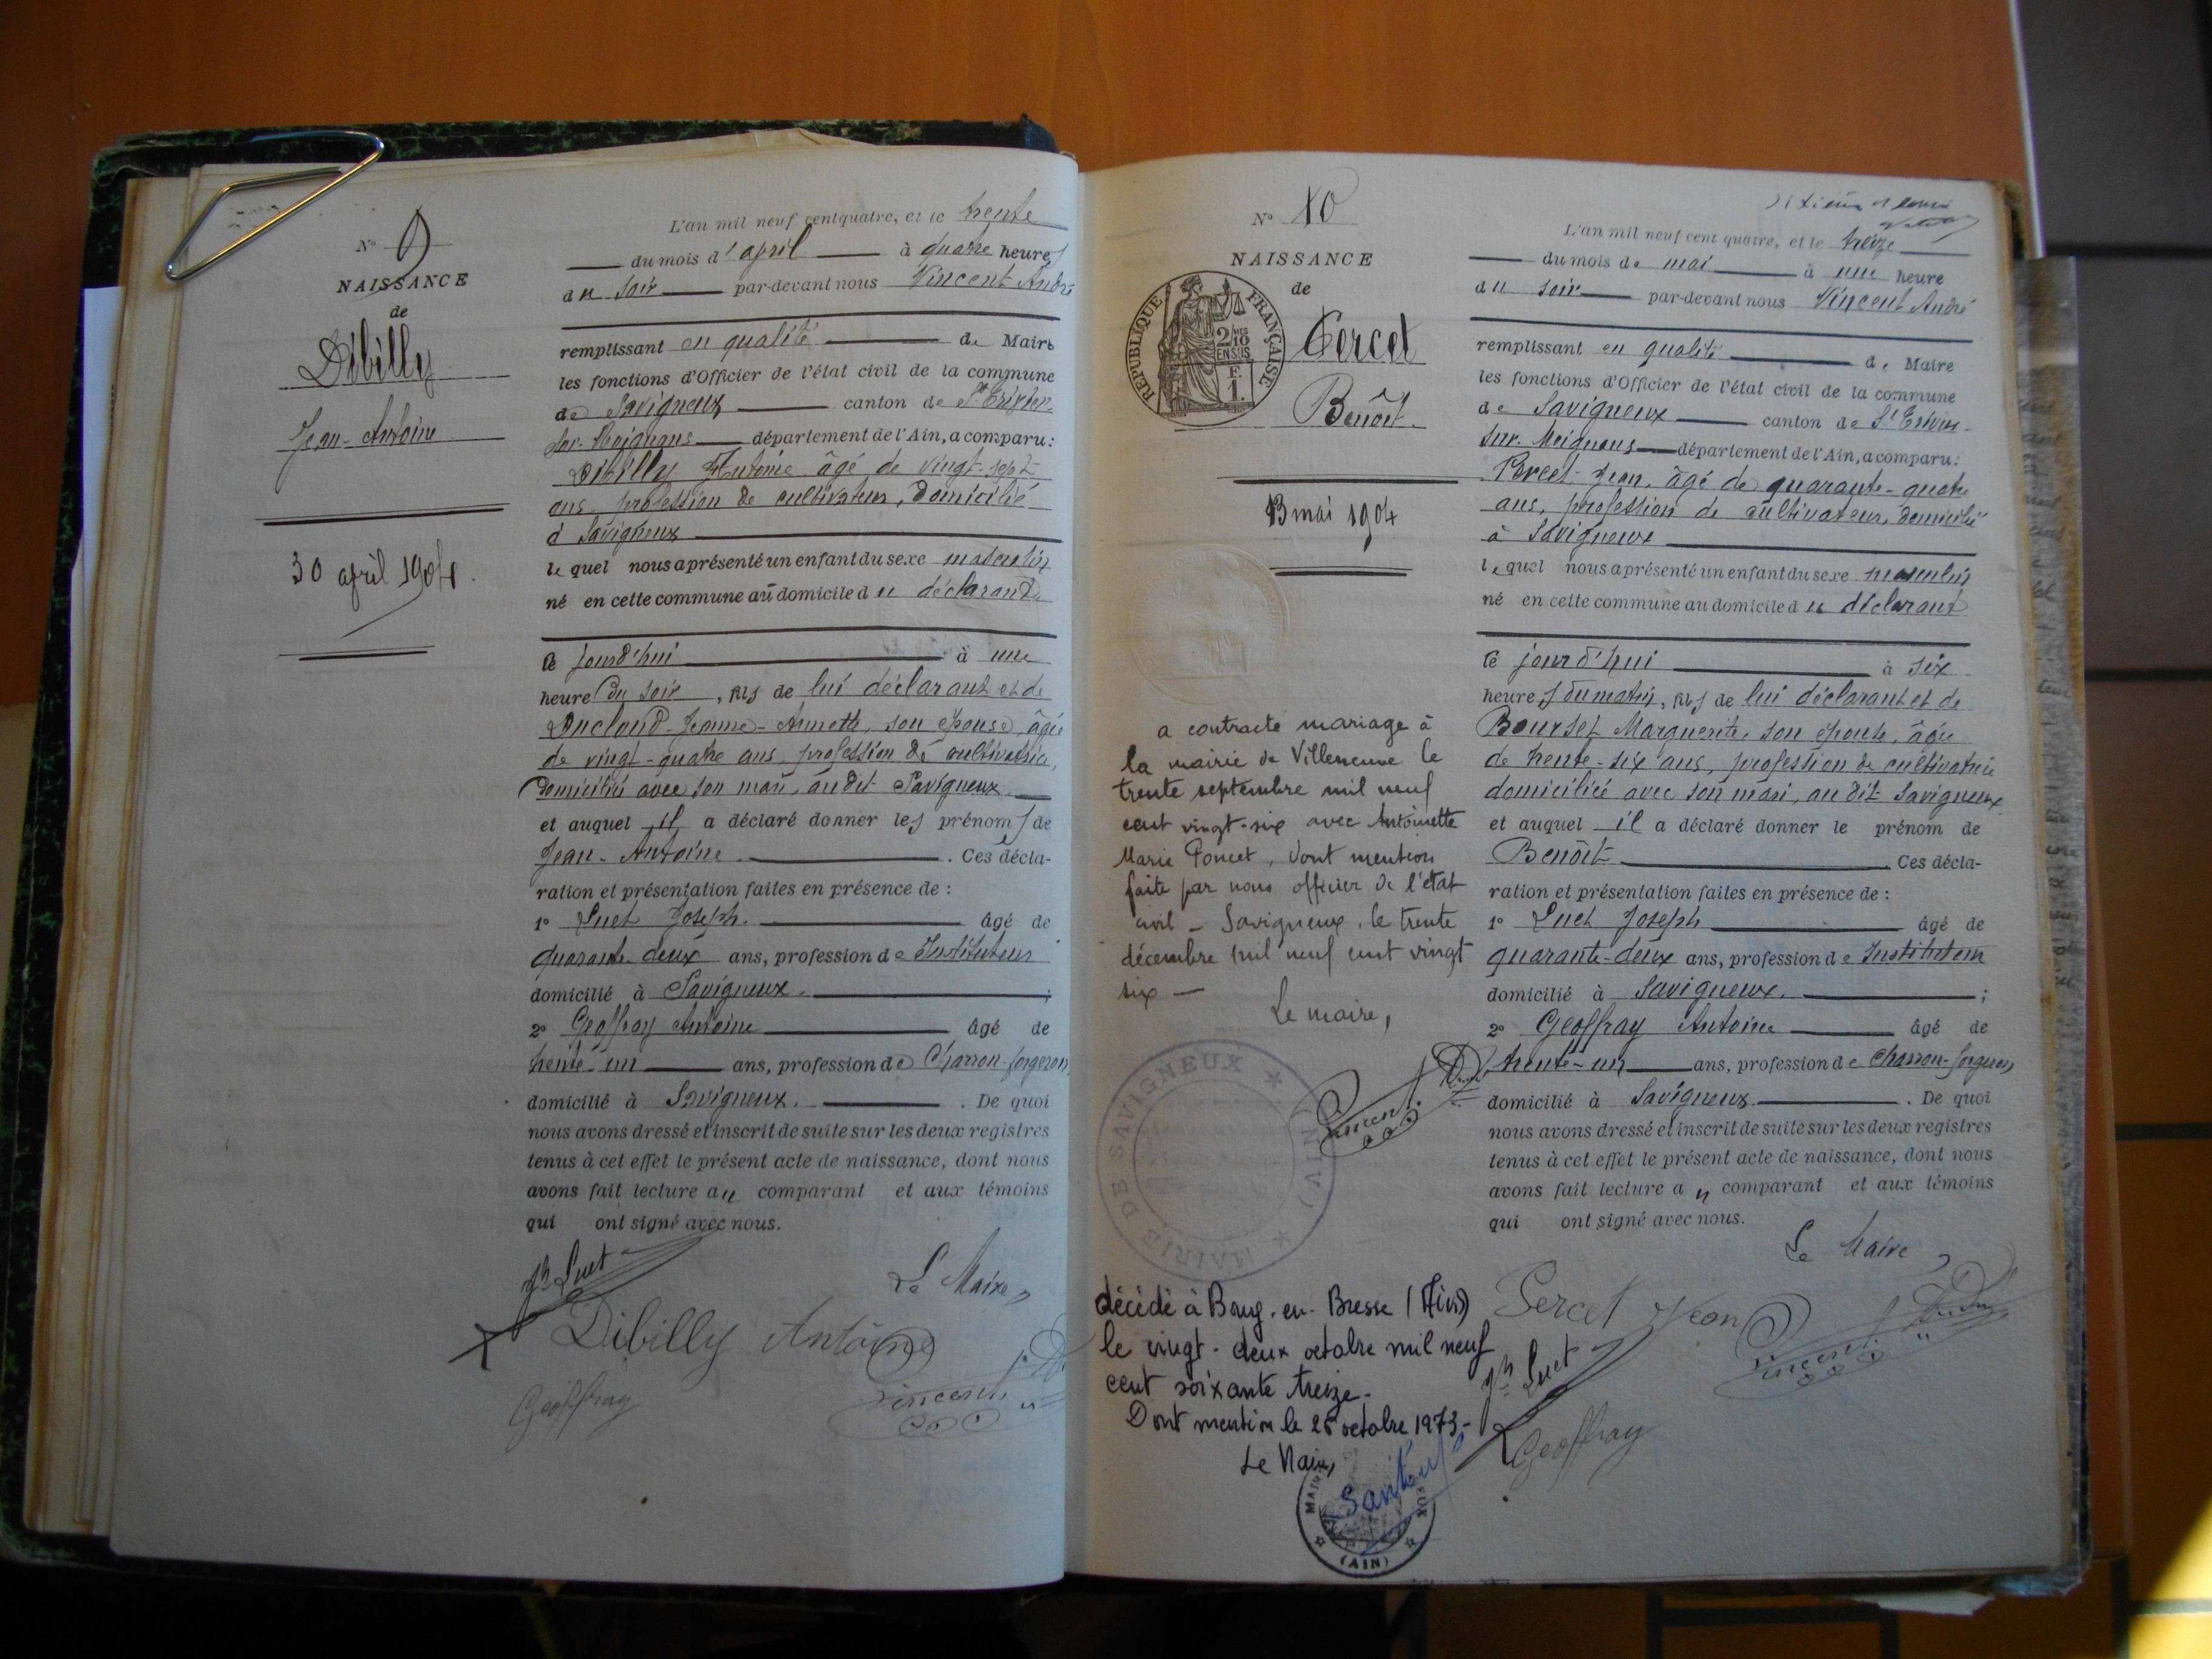 N° 9
NAISSANCE
de
Dibilly
Jean-Antoine
30 april 1904.
L'an mil neuf cent quatre, et le trente
du mois d'april à quatre heures
du soir par-devant nous Vincent André
remplissant en qualité de Maire
les fonctions d'Officier de l'état civil de la commune
de Savigneux canton de St Trivier-
sur-Moignans département de l'Ain, a comparu:
Dibilly Antoine âgé de vingt-sept
ans, profession de cultivateur, domicilié
à Savigneux
lequel nous a présenté un enfant du sexe masculin
né en cette commune au domicile du déclarant
le jourd'hui à une
heure du soir, fils de lui déclarant et de
Ducloud Jeanne-Annette, son épouse, âgée
de vingt-quatre ans, profession de cultivatrice,
domiciliée avec son mari, au dit Savigneux.
et auquel il a déclaré donner les prénoms de
Jean-Antoine. Ces décla-
ration et présentation faites en présence de :
1° Luet Joseph. âgé de
quarante-deux ans, profession de Instituteur
domicilié à Savigneux. ;
2° Geoffray Antoine âgé de
trente-un ans, profession de Charron-forgeron
domicilié à Savigneux. . De quoi
nous avons dressé et inscrit de suite sur les deux registres
tenus à cet effet le présent acte de naissance, dont nous
avons fait lecture au comparant et aux témoins
qui ont signé avec nous.
Jh Luet
Le Maire,
Dibilly Antoine
Geoffray
Vincent
N° 10
NAISSANCE
de
RÉPUBLIQUE FRANÇAISE
2/10 MES
EN SUS
F.
1.
Percet
Benoît.
13 mai 1904
a contracté mariage à
la mairie de Villeneuve le
trente septembre mil neuf
cent vingt-six avec Antoinette
Marie Poncet, dont mention
faite par nous officier de l'état
civil - Savigneux, le trente
décembre mil neuf cent vingt
six -
Le maire,
Vincent
MAIRIE DE SAVIGNEUX (AIN)
décédé à Bourg-en-Bresse (Ain)
le vingt-deux octobre mil neuf
cent soixante treize-
Dont mention le 26 octobre 1973-
Le Maire,
(AIN)
L'an mil neuf cent quatre, et le treize
du mois de mai à une heure
du soir par-devant nous Vincent André
remplissant en qualité de Maire
les fonctions d'Officier de l'état civil de la commune
de Savigneux canton de St Trivier-
sur-Moignans département de l'Ain, a comparu:
Percet Jean, âgé de quarante-quatre
ans, profession de cultivateur, domicilié
à Savigneux
lequel nous a présenté un enfant du sexe masculin
né en cette commune au domicile du déclarant
le jourd'hui à six
heures du matin, fils de lui déclarant et de
Boursel Marguerite, son épouse, âgée
de trente-six ans, profession de cultivatrice
domiciliée avec son mari, au dit Savigneux
et auquel il a déclaré donner le prénom de
Benoît Ces décla-
ration et présentation faites en présence de :
1° Luet Joseph âgé de
quarante-deux ans, profession de Instituteur
domicilié à Savigneux. ;
2° Geoffray Antoine âgé de
trente-un ans, profession de Charron-forgeron
domicilié à Savigneux. . De quoi
nous avons dressé et inscrit de suite sur les deux registres
tenus à cet effet le présent acte de naissance, dont nous
avons fait lecture au comparant et aux témoins
qui ont signé avec nous.
Le Maire,
Percet Jean
Vincent
Jh Luet
Geoffray